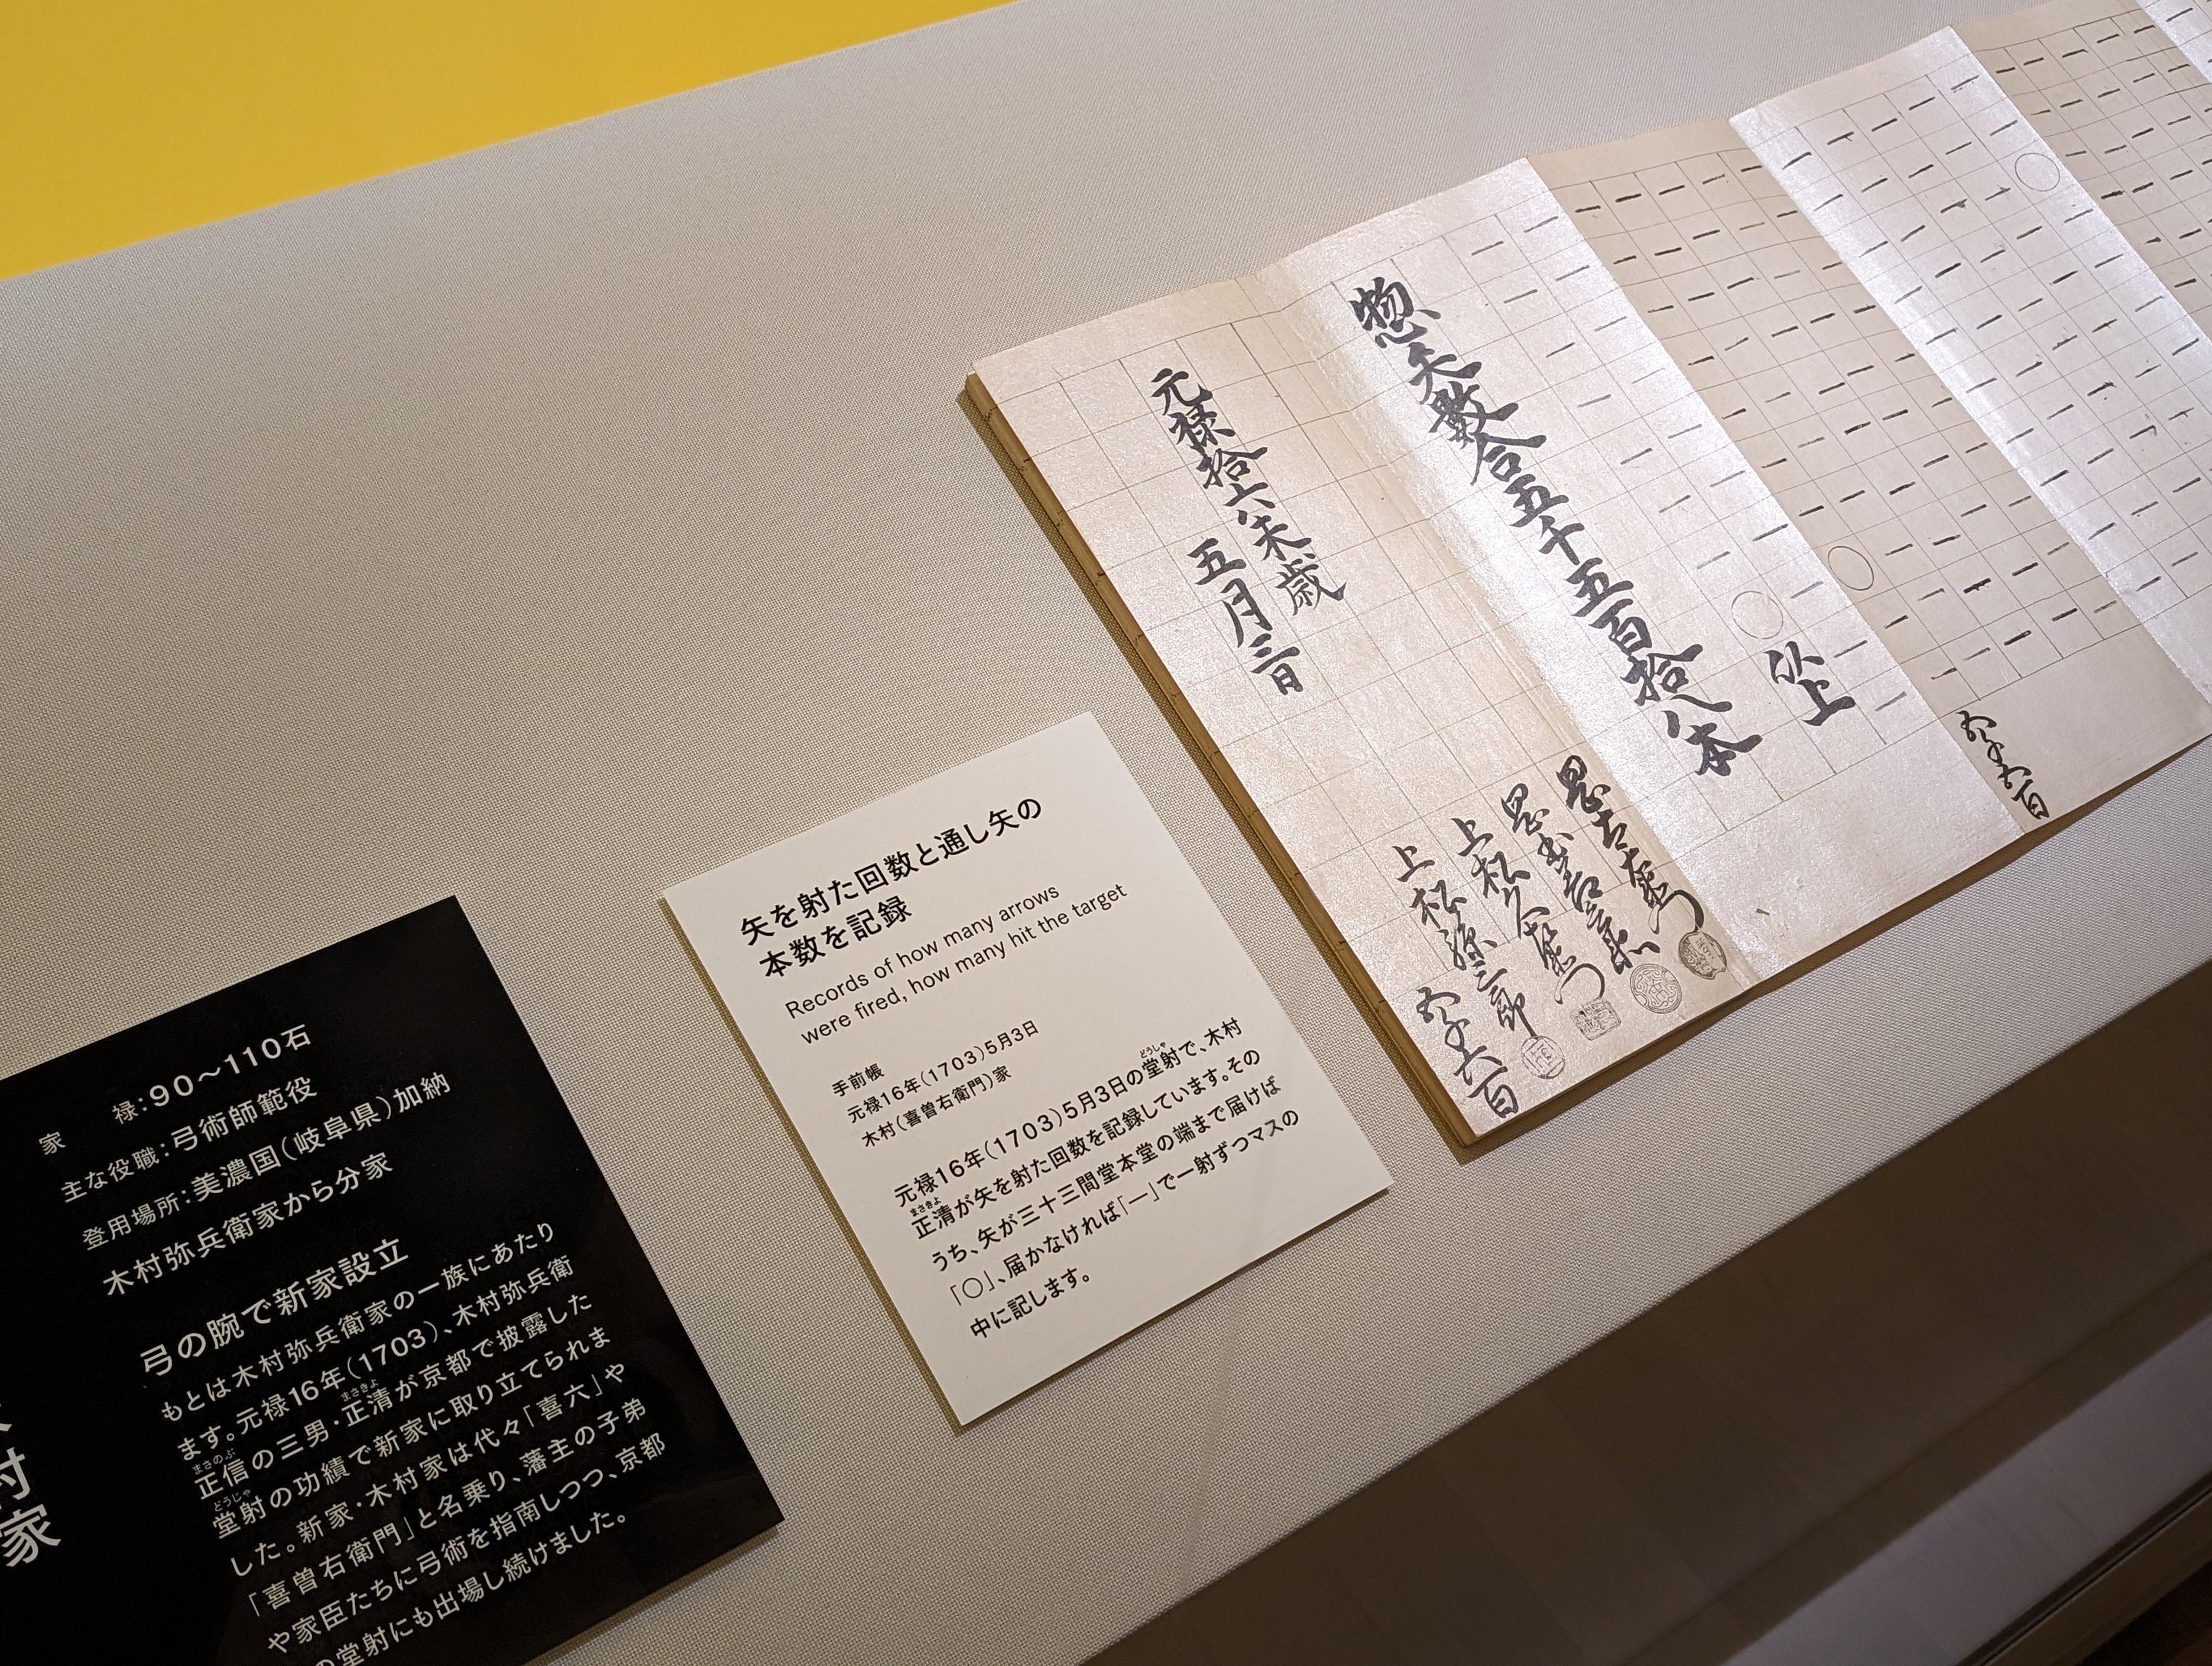 惣矢数合五千五百拾八本
以上
元禄拾六未歳
五月三日
上松
上松
五千五百
五千六百
矢を射た回数と通し矢の
本数を記録
Records of how many arrows
were fired, how many hit the target
手前帳
元禄16年(1703)5月3日
木村(喜曽右衛門)家
元禄16年(1703)5月3日の堂射で、木村
どうしゃ
正清が矢を射た回数を記録しています。その
まさきよ
うち、矢が三十三間堂本堂の端まで届けば
「○」、届かなければ「―」で一射ずつマスの
中に記します。
家 禄:90~110石
主な役職:弓術師範役
登用場所:美濃国(岐阜県)加納
木村弥兵衛家から分家
弓の腕で新家設立
もとは木村弥兵衛家の一族にあたり
ます。元禄16年(1703)、木村弥兵衛
正信の三男・正清が京都で披露した
まさのぶ
まさきよ
堂射の功績で新家に取り立てられま
どうじゃ
した。新家・木村家は代々「喜六」や
「喜曽右衛門」と名乗り、藩主の子弟
や家臣たちに弓術を指南しつつ、京都
の堂射にも出場し続けました。
村家